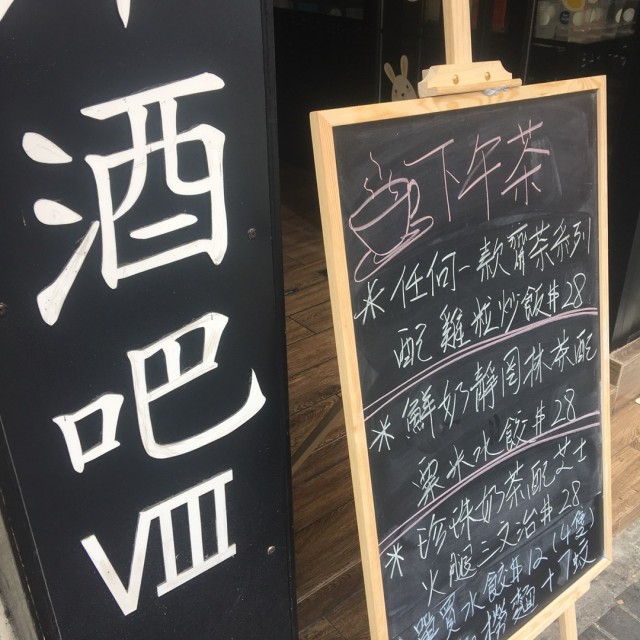 酒吧VIII
下午茶
*任何一款齋茶系列
配雞粒炒飯$28
*鮮奶靜岡抹茶配
粟米水餃$28
*珍珠奶茶配芝士
火腿三文治$28
買水餃$12(4隻)
撈麵+7蚊